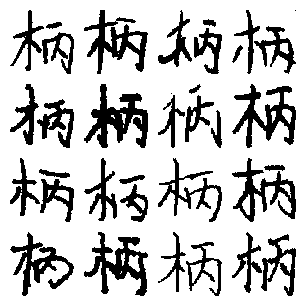 柄柄柄柄
柄柄柄柄
柄柄柄柄
柄柄柄柄